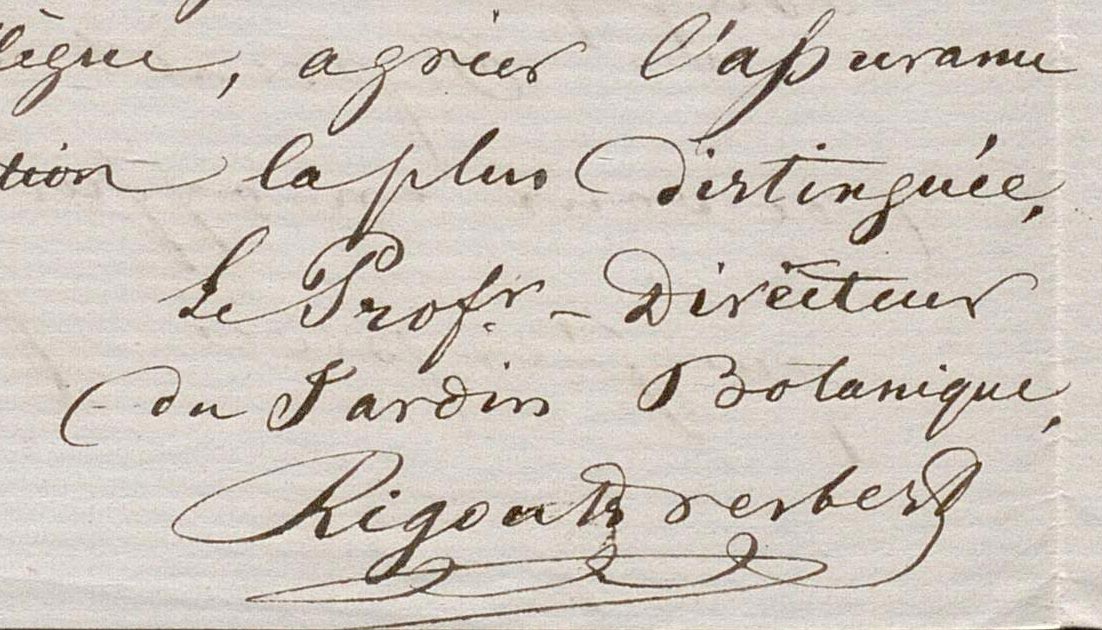 lègue, agréer l'assurance
tion la plus distinguée,
Le Profr. - Directeur
du Jardin Botanique,
Rigouts Verbert